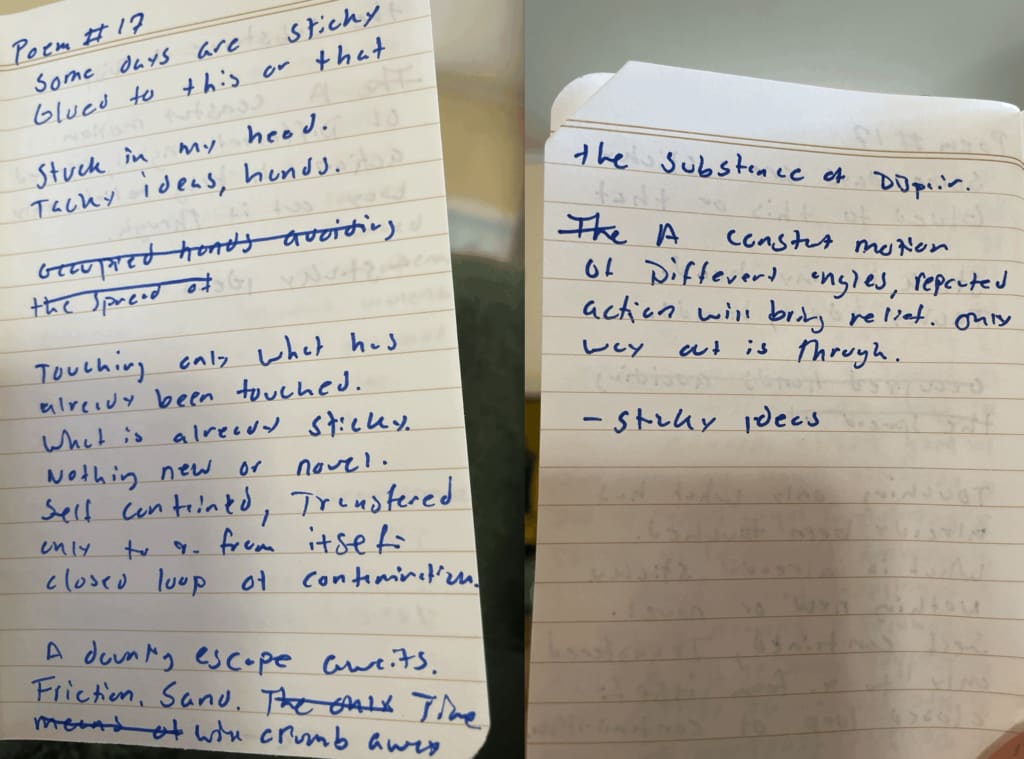 Poem #17
Some days are sticky
Glued to this or that
Stuck in my head.
Tacky ideas, hands.
Occupied hands avoiding
the spread of
Touching only what has
already been touched.
What is already sticky.
Nothing new or novel.
Self contained, Transfered
only to & from itself
closed loop of contamination.
A daunting escape awaits.
Friction. Sand. The only Time
means of will crumb away
the substance of
The A constant motion
of Different angles, repeated
action will bring relief. only
way out is Through.
- sticky ideas